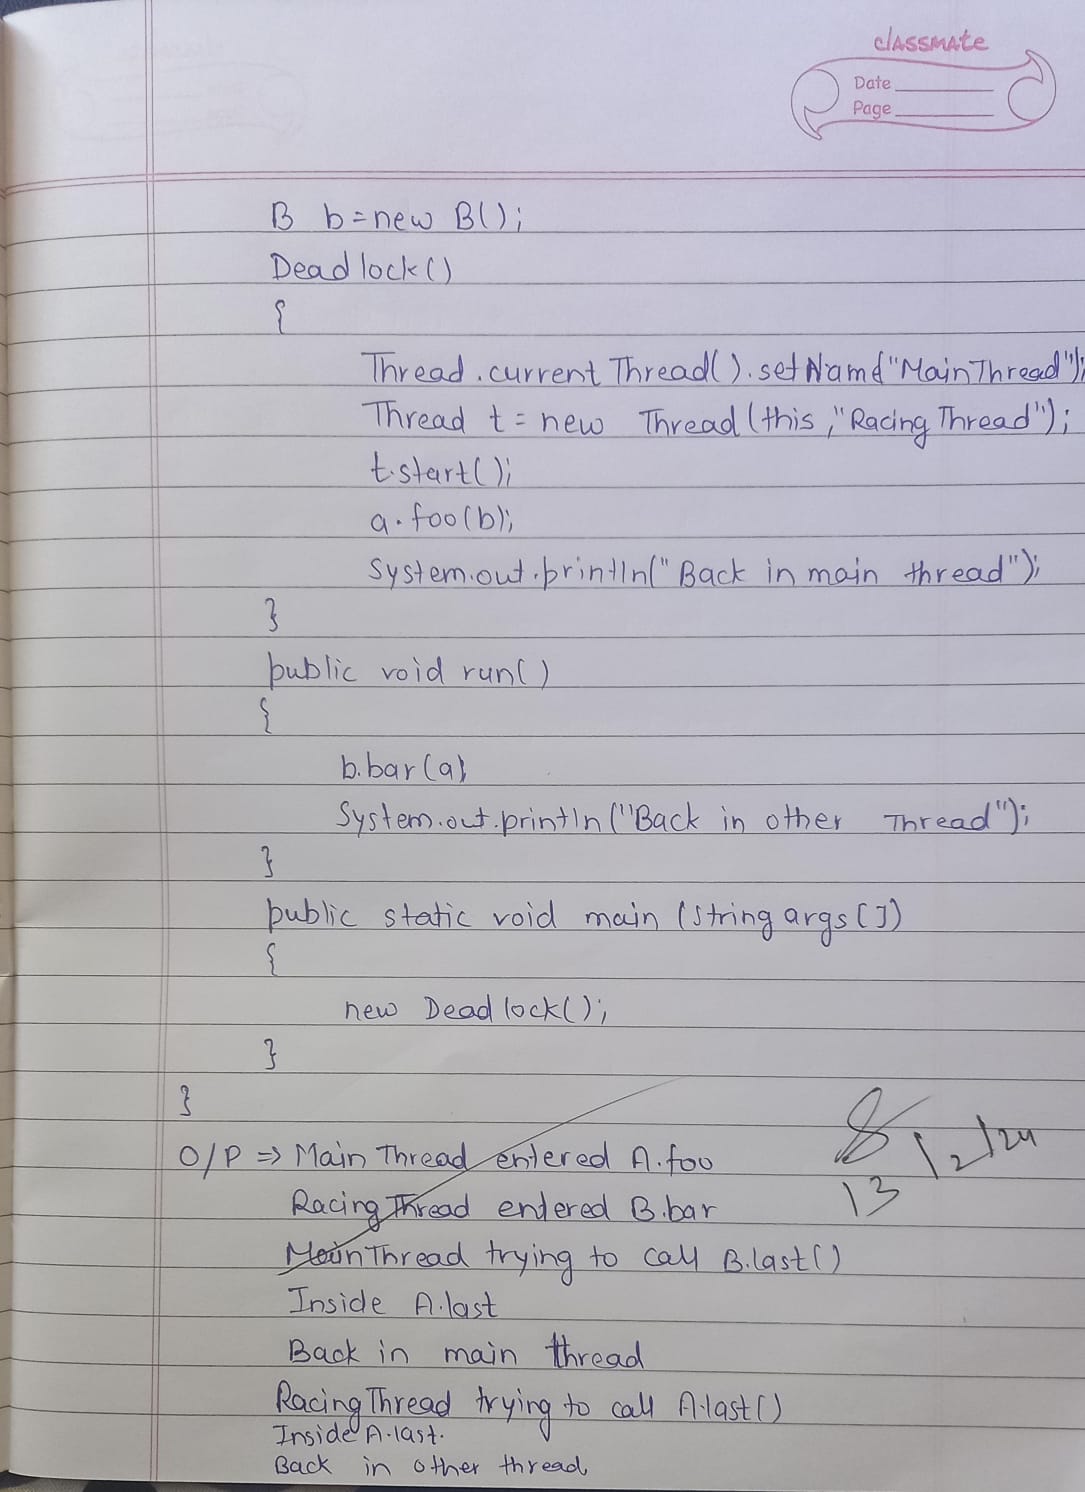 classmate
Date
Page
B b=new B();
Deadlock()
{
Thread.currentThread().setName("MainThread");
Thread t = new Thread(this,"Racing Thread");
t.start();
a.foo(b);
System.out.println("Back in main thread");
}
public void run()
{
b.bar(a);
System.out.println("Back in other Thread");
}
public static void main (String args[])
{
new Deadlock();
}
}
O/P => Main Thread entered A.foo
Racing Thread entered B.bar
Main Thread trying to call B.last()
Inside A.last
Back in main thread
Racing Thread trying to call A.last()
Inside A.last.
Back in other thread
13/2/24